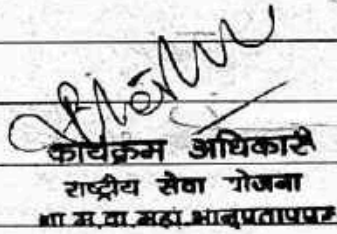 कार्यक्रम अधिकारी
राष्ट्रीय सेवा योजना
शा.म.वा.महा.भानुप्रतापपुर